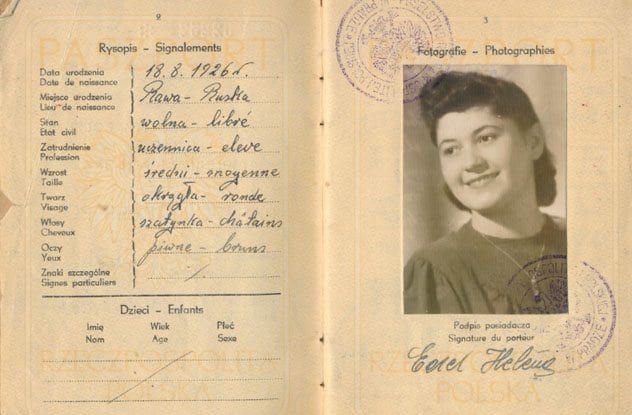 2
Rysopis - Signalements
Data urodzenia 18.8.1926 r.
Date de naissance
Miejsce urodzenia Rawa-Ruska
Lieu de naissance
Stan wolna - libre
Etat civil
Zatrudnienie uczennica - eleve
Profession
Wzrost średni - moyenne
Taille
Twarz okrągła - ronde
Visage
Włosy szatynka - châtains
Cheveux
Oczy piwne - bruns
Yeux
Znaki szczególne
Signes particuliers
Dzieci - Enfants
Imię Wiek Płeć
Nom Age Sexe
3
Fotografie - Photographies
Podpis posiadacza
Signature du porteur
Helena
POLSKA
POLSKA